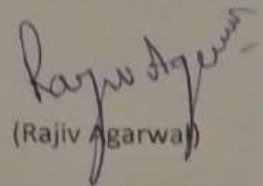 Rajiv Agarwal
(Rajiv Agarwal)